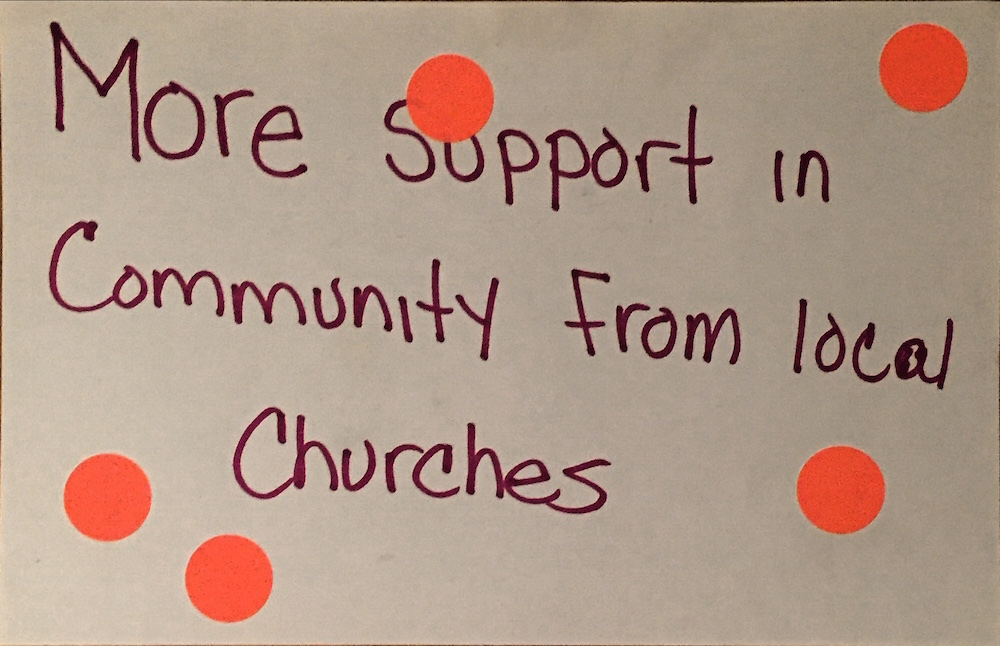 More Support in
Community From local
Churches